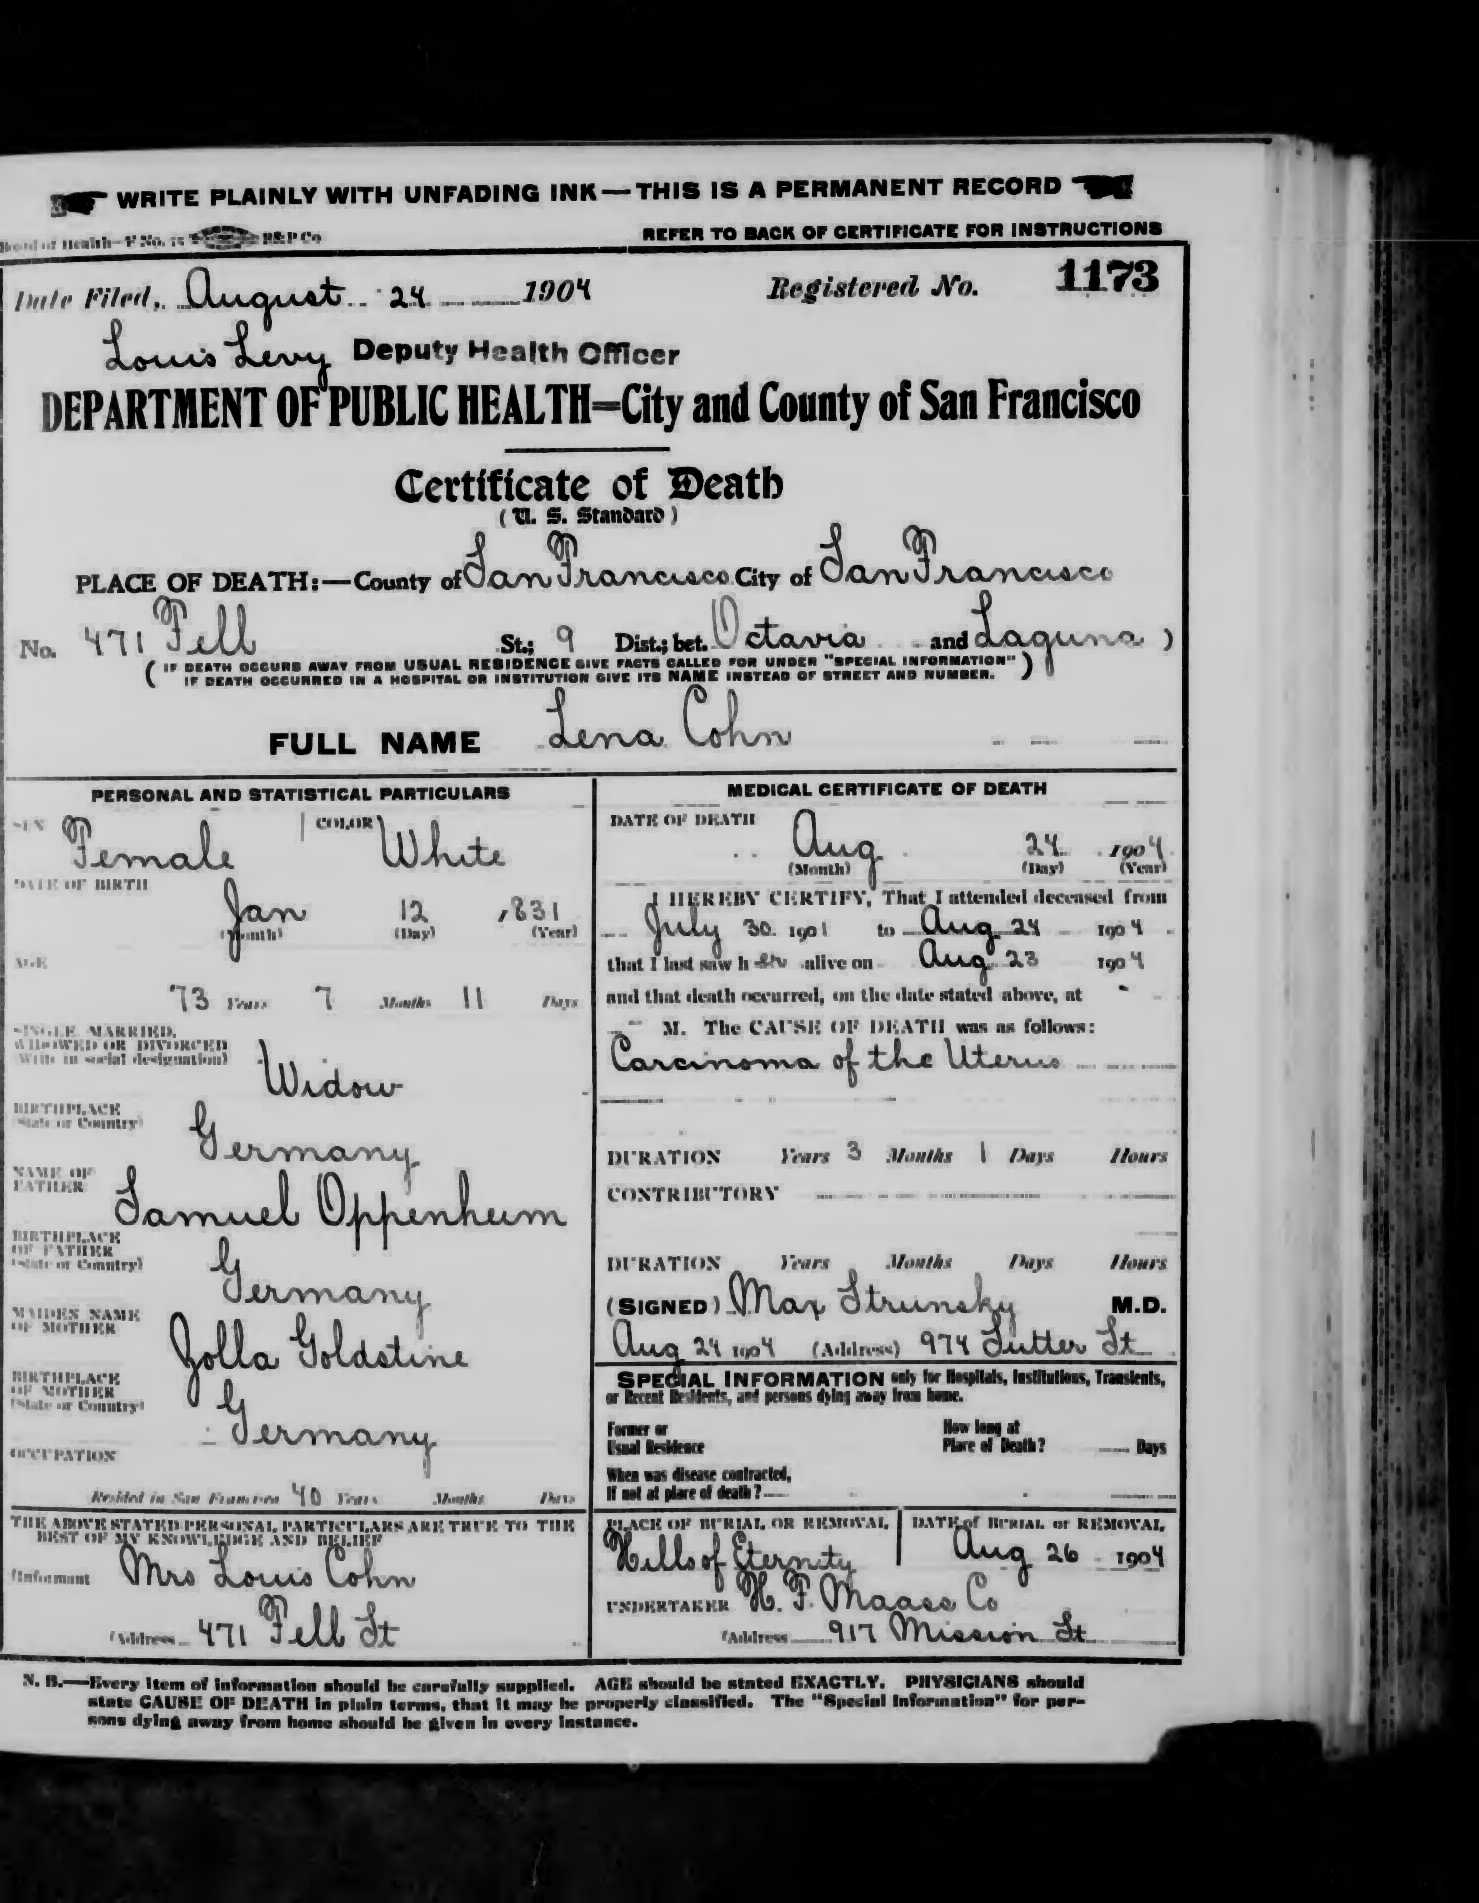 WRITE PLAINLY WITH UNFADING INK—THIS IS A PERMANENT RECORD
Board of Health—F No. 15 B&P Co
REFER TO BACK OF CERTIFICATE FOR INSTRUCTIONS
Date Filed, August 24 1904 Registered No. 1173
Louis Levy Deputy Health Officer
DEPARTMENT OF PUBLIC HEALTH=City and County of San Francisco
Certificate of Death
(U. S. Standard)
PLACE OF DEATH:—County of San Francisco City of San Francisco
No. 471 Fell St.; 9 Dist.; bet. Octavia and Laguna )
( IF DEATH OCCURS AWAY FROM USUAL RESIDENCE GIVE FACTS CALLED FOR UNDER "SPECIAL INFORMATION" )
IF DEATH OCCURRED IN A HOSPITAL OR INSTITUTION GIVE ITS NAME INSTEAD OF STREET AND NUMBER.
FULL NAME Lena Cohn
PERSONAL AND STATISTICAL PARTICULARS
SEX Female COLOR White
DATE OF BIRTH
Jan 12 1831
(Month) (Day) (Year)
AGE
73 Years 7 Months 11 Days
SINGLE, MARRIED,
WIDOWED OR DIVORCED
(Write in social designation)
Widow
BIRTHPLACE
(State or Country)
Germany
NAME OF
FATHER
Samuel Oppenheim
BIRTHPLACE
OF FATHER
(State or Country)
Germany
MAIDEN NAME
OF MOTHER
Zolla Goldstine
BIRTHPLACE
OF MOTHER
(State or Country)
Germany
OCCUPATION
Resided in San Francisco 40 Years Months Days
THE ABOVE STATED PERSONAL PARTICULARS ARE TRUE TO THE
BEST OF MY KNOWLEDGE AND BELIEF
(Informant Mrs Louis Cohn
(Address 471 Fell St
MEDICAL CERTIFICATE OF DEATH
DATE OF DEATH
Aug 24 1904
(Month) (Day) (Year)
I HEREBY CERTIFY, That I attended deceased from
July 30 1901 to Aug 24 1904
that I last saw h er alive on Aug 23 1904
and that death occurred, on the date stated above, at
M. The CAUSE OF DEATH was as follows:
Carcinoma of the Uterus
DURATION Years 3 Months 1 Days Hours
CONTRIBUTORY
DURATION Years Months Days Hours
(SIGNED) Max Strunsky M.D.
Aug 24 1904 (Address) 974 Sutter St
SPECIAL INFORMATION only for Hospitals, Institutions, Transients,
or Recent Residents, and persons dying away from home.
Former or
Usual Residence
How long at
Place of Death? Days
When was disease contracted,
If not at place of death?
PLACE OF BURIAL OR REMOVAL
Hills of Eternity
DATE of BURIAL or REMOVAL
Aug 26 1904
UNDERTAKER H. F. Maass Co
(Address 917 Mission St
N. B.—Every item of information should be carefully supplied. AGE should be stated EXACTLY. PHYSICIANS should
state CAUSE OF DEATH in plain terms, that it may be properly classified. The "Special Information" for per-
sons dying away from home should be given in every instance.